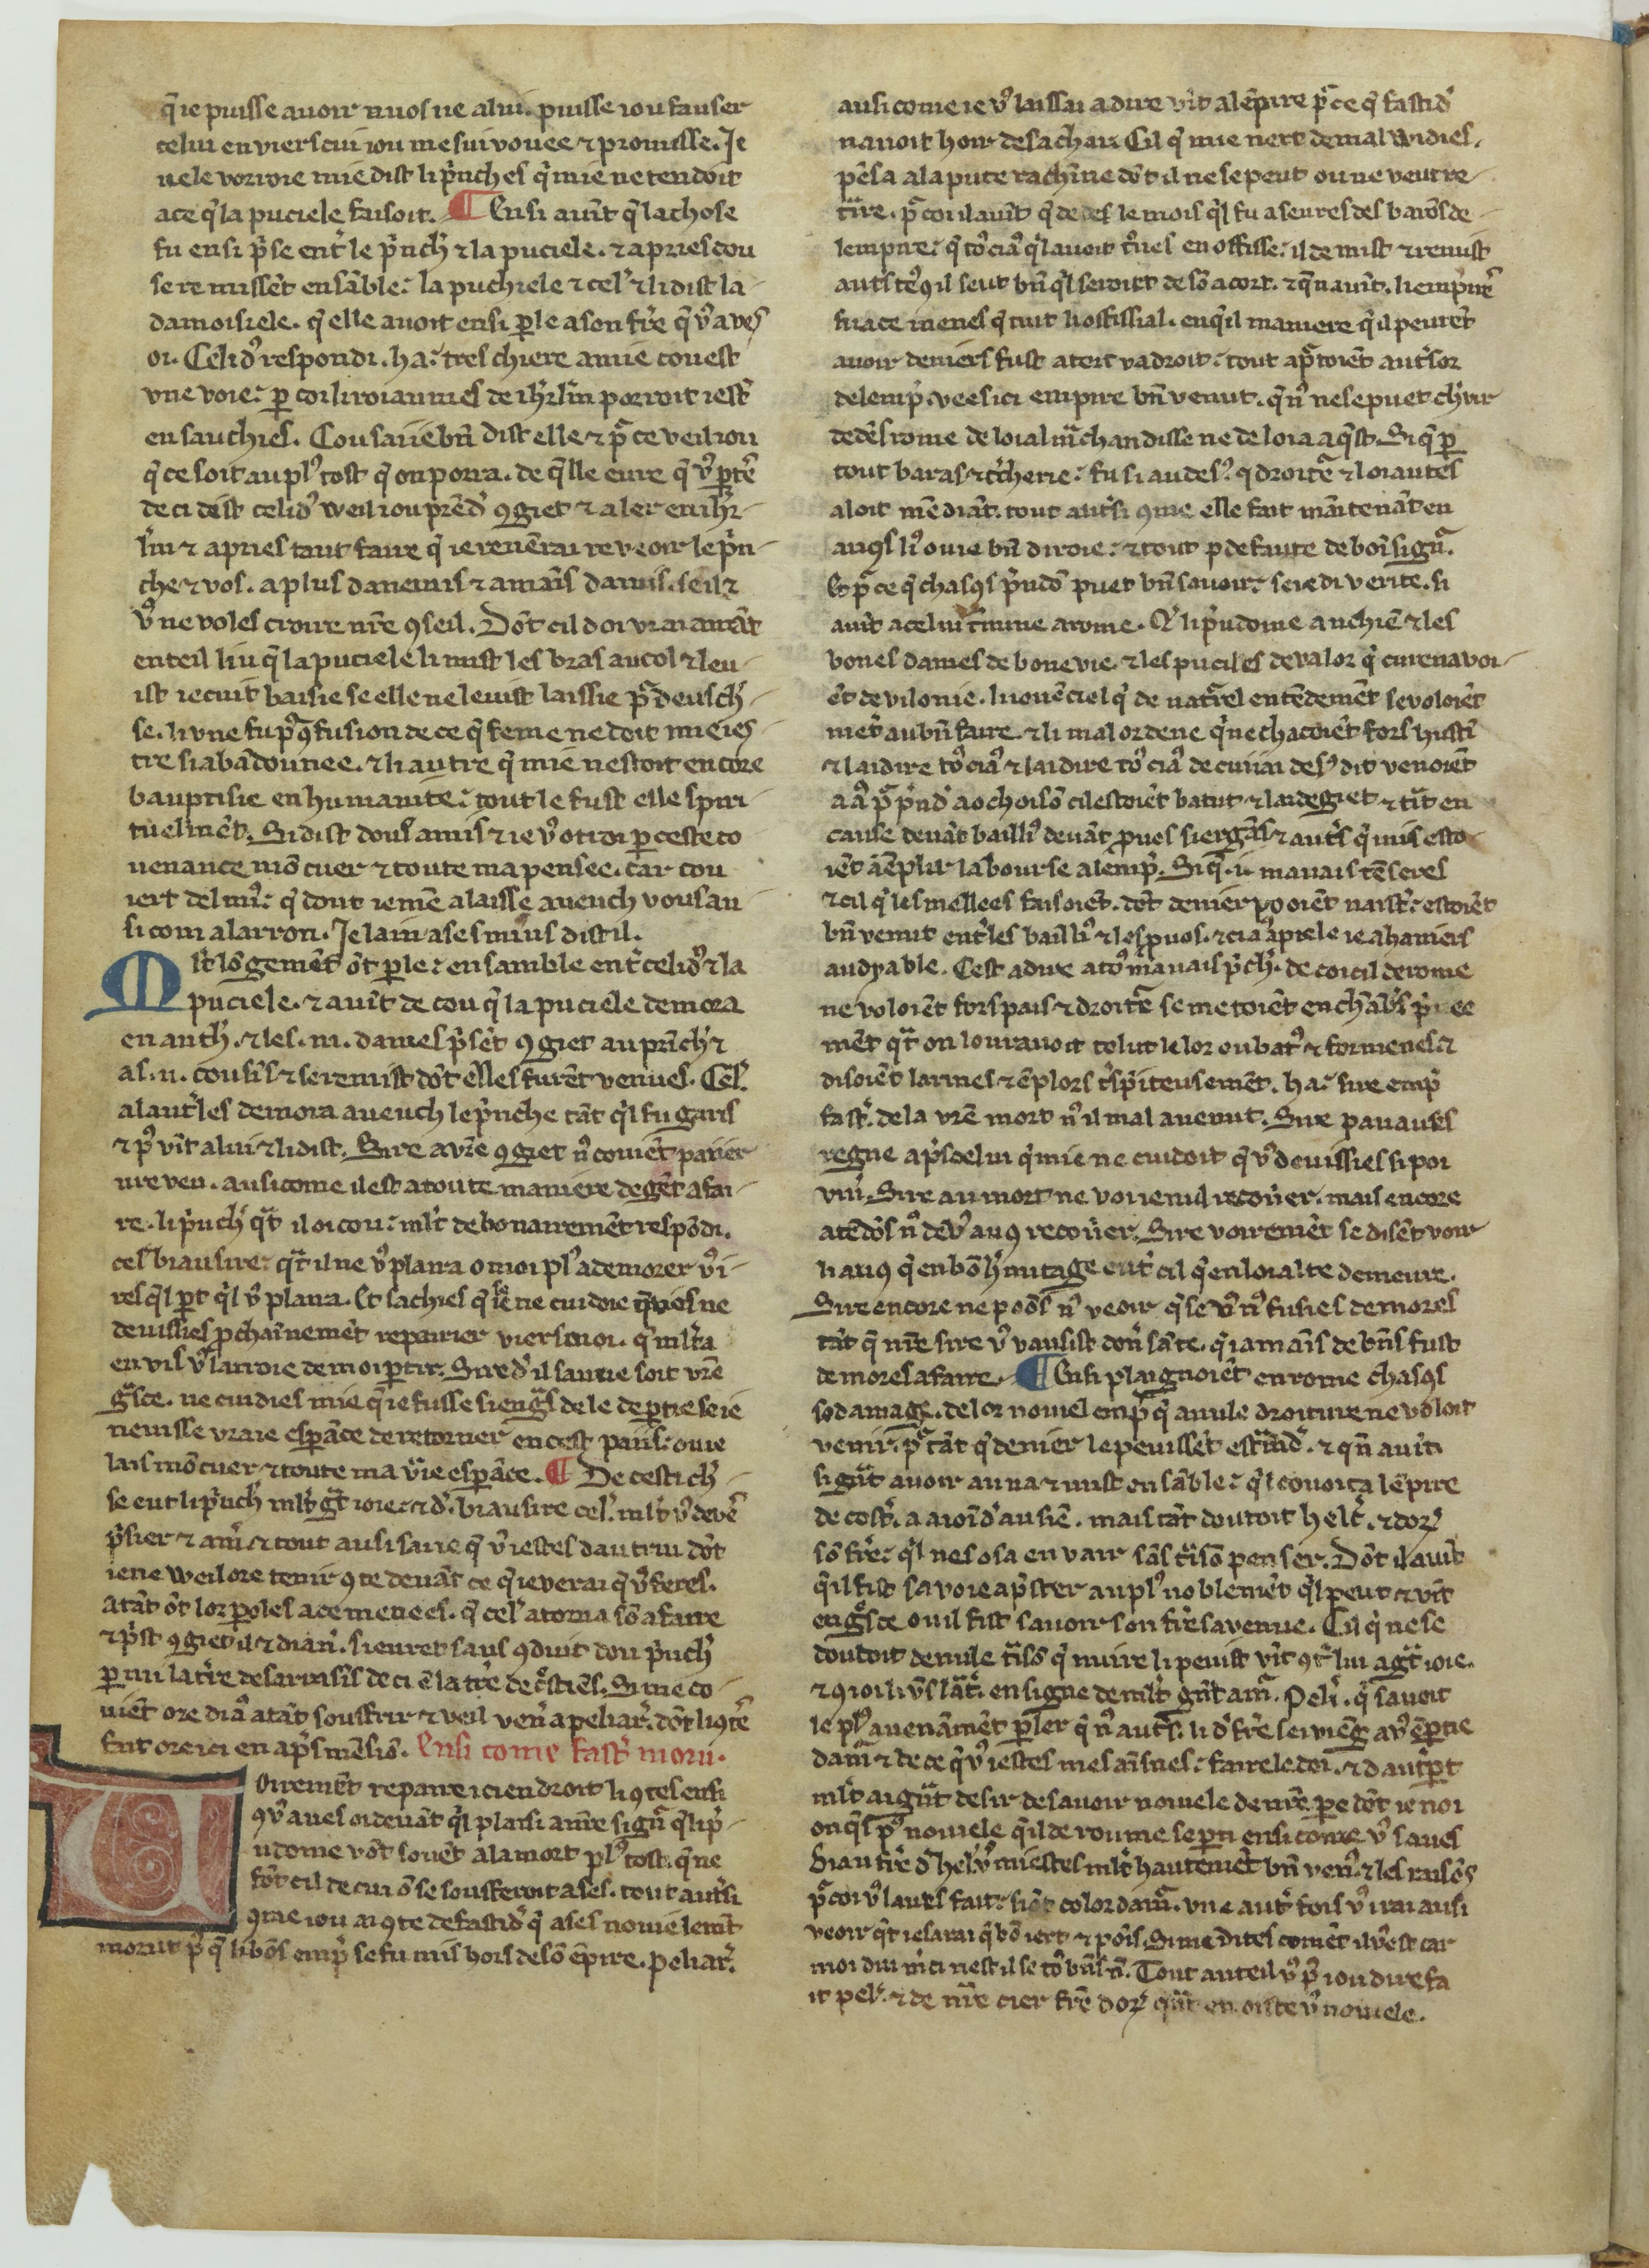 q̄ ie puisse auoir n uos ne a lui. puisse iou fauser
celui enuiers cui iou me sui vouee ⁊ promisse. Je
nele vorroie mie dist li p̄nches q̄ mie ne tendoit
a ce q̄ la puciele faisoit. ¶ Ensi auīt q̄ la chose
fu ensi p̄se ent̄ le p̄nch̄ ⁊ la puciele. ⁊ apries cou
se remissēt ensāble: la puchiele ⁊ cel᷒ ⁊ li dist la
damoisiele. q̄ elle auoit ensi ꝑle a son fr̄e q̄ v᷒ aves
oi. Celid᷒ respondi. ha: tres chiere amie cou est
vne voie: ꝑ coi li roiaumes de ih̄rl̄m porroit iest̄
ensauchies. Cou sai ie bn̄ dist elle ⁊ p̄ ce veil iou
q̄ ce soit au pl᷒ tost q̄ on pora. de q̄lle eure q̄ v᷒ ꝑtē
de ci dist celid᷒ weil iou prēd᷒ ꝯgiet ⁊ aler en ih̄r
l̄m ⁊ apries tant faire q̄ ie reuēnrai reveoir le p̄n
che ⁊ vos. a plus danemis ⁊ a mains damis. se il ⁊
v᷒ ne voles croire nr̄e ꝯseil. Dōt cil doi vrai amāt
en teil liu q̄ la puciele li mist les bras au col ⁊ leu
ist ie cuit baisie se elle ne leuist laissie p̄ deus ch̄
se. li vne fu p̄ ꝯfusion de ce q̄ feme ne doit mie ies
tre si abādounee. ⁊ li autre q̄ mie nestoit encore
bauptisie en humanite: tout le fust elle spiri
tuelmēt. Si dist dous amis ⁊ ie v᷒ otroi ꝑ ceste co
uenance mō cuer ⁊ toute ma pensee. car cou
iert del mī: q̄ dont iemē alaisse auench vous au
si com a larron. Je lain ases miuus dist il.
Mlt̄ lōgemēt ōt ꝑle: ensamble ent̄ celid᷒ ⁊ la
puciele. ⁊ auīt de cou q̄ la puciele demora
en anth̄. ⁊ les .iii. dames p̄sēt ꝯgiet au prīch̄ ⁊
as .ii. cousīs ⁊ se remist dōt elles furēt venues. Cel᷒
a lautr̄ les demora auench le p̄nche tāt q̄l fu garis
⁊ p᷒ vīt a lui ⁊ li dist. Sire a vr̄e ꝯgiet n᷒ couiēt paiier
nre veu. ausi come il est a toute maniere de gēt a fai
re. li p̄nch̄ q̄t il oi cou: mlt̄ debonairemēt respōdi.
cel᷒ biau sire: q̄t il ne v᷒ plaira o moi pl᷒ a demorer v᷒ i
res q̄l ꝑt q̄l v᷒ plaira. Et sachies q̄ se ne cuidoie q̄ vos ne
deuissies ꝓchainemēt repairier viers moi. q̄ mlt̄ a
en vis v᷒ lairoie de moi ꝑtir. Sire d᷒ il sauue soit vr̄e
gr̄sce. ne cuidies mie q̄ ie fusse si engr̄s de le deꝑtie se ie
neuisse vraie espāce de retorner en cest pais: ou ie
lais mō cuer ⁊ toute ma vīe espāce. ¶ De cesti ch̄
se eut li p̄nch̄ mlt̄ gr̄t ioie: ⁊ d᷒. biau sire cel᷒. mlt̄ v᷒ devē
p̄sier ⁊ am̄. ⁊ tout ausi saiie q̄ v᷒ iestes dautrui dōt
ie ne weil ore tenir ꝯte deuāt ce q̄ ie verai q̄ v᷒ feres.
atāt ōt lor ꝑoles a ce menees. q̄ cel᷒ atorna sō afaire
⁊ p̄st ꝯgiet il ⁊ dian̄. si eurēt saus ꝯduit dou p̄nch̄
ꝑ mi la tr̄re des sarrasīs de ci ē la tr̄e de c̄stiēs. Si me co
uiēt ore diā atāt souffrir ⁊ veil ven̄ a peliar̄. dōt li ꝯte
fait ore ici en ap̄s mēsiō. Ensi come fast̄ moru.
Voiremēt repaire ici en droit li ꝯtes ensi
ꝯ v᷒ aues oi deuāt q̄l plaisi a nr̄e sign̄ q̄ li p̄
udome vōt souēt a la mort pl᷒ tost. q̄ ne
fōt cil de cui ō se soufferoit ases. tout aut̄si
ꝯme iou ai ꝯte de fastid᷒ q̄ ases nouielemēt
morut p᷒ q̄ li bōs emp̄ se fu mis hors de sō ēpire. peliar̄.
ausi come ie v᷒ laissai a dire vīt a lēpire p̄ ce q̄ fastid᷒
nauoit hoir de sa char. Cil q̄ mie nert de mal widies.
pēsa a la pute rachine dōt il ne se peut ou ne veut re
tr̄ire. p̄ coi il auīt q̄ dedes le mois q̄l fu aseures des barōs de
lempire: q̄ to᷒ cia᷒ q̄l auoit t̄ues en offisse: il demist ⁊ remist
aut̄s te᷒ꝯ il seut bn̄ q̄l seroiēt de sō acort. ⁊ q̄n auīt. li emp̄ire
fu a ce menes q̄ tuit li offissial. en q̄il maniere q̄ il peurēt
auoir deniers fust a tort v a droit: tout ap̄toiēt aut̄sor
de lemp̄. vees ici empire bn̄ venut. q̄ n᷒ ne se puet ch̄vir
dedēs rome de loial m̄chandisse ne de loial aq̄st. Si q̄ ꝑ
tout baras ⁊ tr̄cherie: fu si au des᷒. q̄ droit̄e ⁊ loiautes
aloit mēdiāt. tout aut̄si ꝯme elle fait māitenāt en
auꝯs li᷒ ou ie bn̄ diroie: ⁊ tout ꝑ defaute de boī sign̄.
Et p̄ ce q̄ chasꝯs p̄udō puet bn̄ savoir: se ie di verite. si
auīt a celui t̄mine a rome. Q̄ li p̄udome anchiē ⁊ les
bones dames de bone vie. ⁊ les puceles de valor q̄ cure navoi
ēt de vilonie. li iouēciel q̄ de nat̄el entēdemēt se voloiēt
met̄ au bn̄ faire. ⁊ li mal ordene q̄ ne chacoiēt fors hustī
⁊ laidire to᷒ cia᷒ ⁊ laidire to᷒ cia᷒ de cui iai des᷒ dit venoiēt
a a᷒ p̄ p̄nd᷒ aochoisō cil estoiēt batut ⁊ laidegiet ⁊ tr̄it en
cause deuāt bailli᷒ deuāt ꝓuos siergās ⁊ aut̄s q̄ mis esto
iēt a ēplir la bourse a lemp̄. Si q̄ .ii. mauais tēseres
⁊ cil q̄ les mellees faisoiēt. dōt denier pooiēt naist̄: estoiēt
bn̄ venut ent̄ les bailli᷒ ⁊ les ꝓuos. ⁊ cia᷒ apiele ie ahaniers
au dyable. Cest a dire a to᷒ mauais p̄ch̄. de coi cil de rome
ne voloiēt fors pais ⁊ droit̄e se metoiēt en chābr̄s p̄uee
mēt q̄t on lour auoit tolut le lor ou bat᷒ ⁊ formenes ⁊
disoiēt larmes ⁊ ēplors t̄s piteusemēt. ha: sire emp̄
fast̄. de la vr̄e mort n᷒ il mal auenut. Sire pau aues
regne ap̄s celui q̄ mie ne cuidoit q̄ v᷒ deuissies si poi
viu᷒. Sire au mort ne voi ie nul recouer. mais encore
atēdōs n᷒ de v᷒ auꝯ recouer. Sire voiremēt se disēt voir
li auꝯ q̄ en bō h̄mitage ent̄ cil q̄ en loialte demeure.
Sire encore ne poōs n᷒ veoir q̄ se v᷒ n᷒ fusies demores
tāt q̄ nr̄e sire v᷒ vausist don̄ sāte. q̄ iamais de bn̄s fust
demores a faire. ¶ Ensi plaignoiēt en rome chasꝯs
so damage. de lor nouiel emp̄ q̄ a nule droiture ne voloit
venir. p̄ tāt q̄ denier le peuissēt est̄ind᷒. ⁊ q̄n auīt
si gr̄āt auoir auna ⁊ mist ensāble: q̄l couoita lēpire
de cost̄. a aioīd᷒ au siē. mais tāt doutoit helc̄. ⁊ dor̄
sō fr̄e: q̄l nes osa envair sās tr̄isō penser. Dōt il auīt
q̄ il fist sa voie ap̄ster au pl᷒ noblemēt q̄l peut ⁊ vīt
en gr̄sce ou il fist sauoir son fr̄e sa venue. Cil q̄ ne se
doutoit de nule tr̄isō q̄ nuire li peuist vīt ꝯt̄ lui a gr̄t ioie.
⁊ ꝯioi li v̄s lāt̄. en signe de mlt̄ gr̄āt am̄. Peli᷒. q̄ sauoit
le pl᷒ auenāmēt ꝑler q̄ n᷒ aut̄s. li d᷒ fr̄e se wiēg a v᷒ ē ꝑtie
dam̄ ⁊ de ce q̄ v᷒ iestes mes ainsnes: faire le doi. ⁊ daut̄ ꝑt
mlt̄ ai gr̄āt desir de sauoir nouiele de nr̄e pere dōt ie noi
onq̄s p᷒ nouiele q̄ il de roume se ꝑti ensi come v᷒ saues
Biau fr̄e d᷒ hel᷒. v᷒ miestes mlt̄ hautemēt bn̄ ven᷒. ⁊ les raisōs
p̄ coi v᷒ laues fait: siōt color dam̄. vne aut̄ fois v᷒ irai ausi
veoir q̄t ie sarai q̄ bō iert ⁊ poīs. Si me dites comēt il v᷒ est car
moi diu m̄ci nest il se to᷒ bn̄s n̄. Tout auteil v᷒ p̄ iou dire fa
it pel᷒. ⁊ de nr̄e cier fr̄e dor̄ q̄nt en oiste v᷒ nouiele.